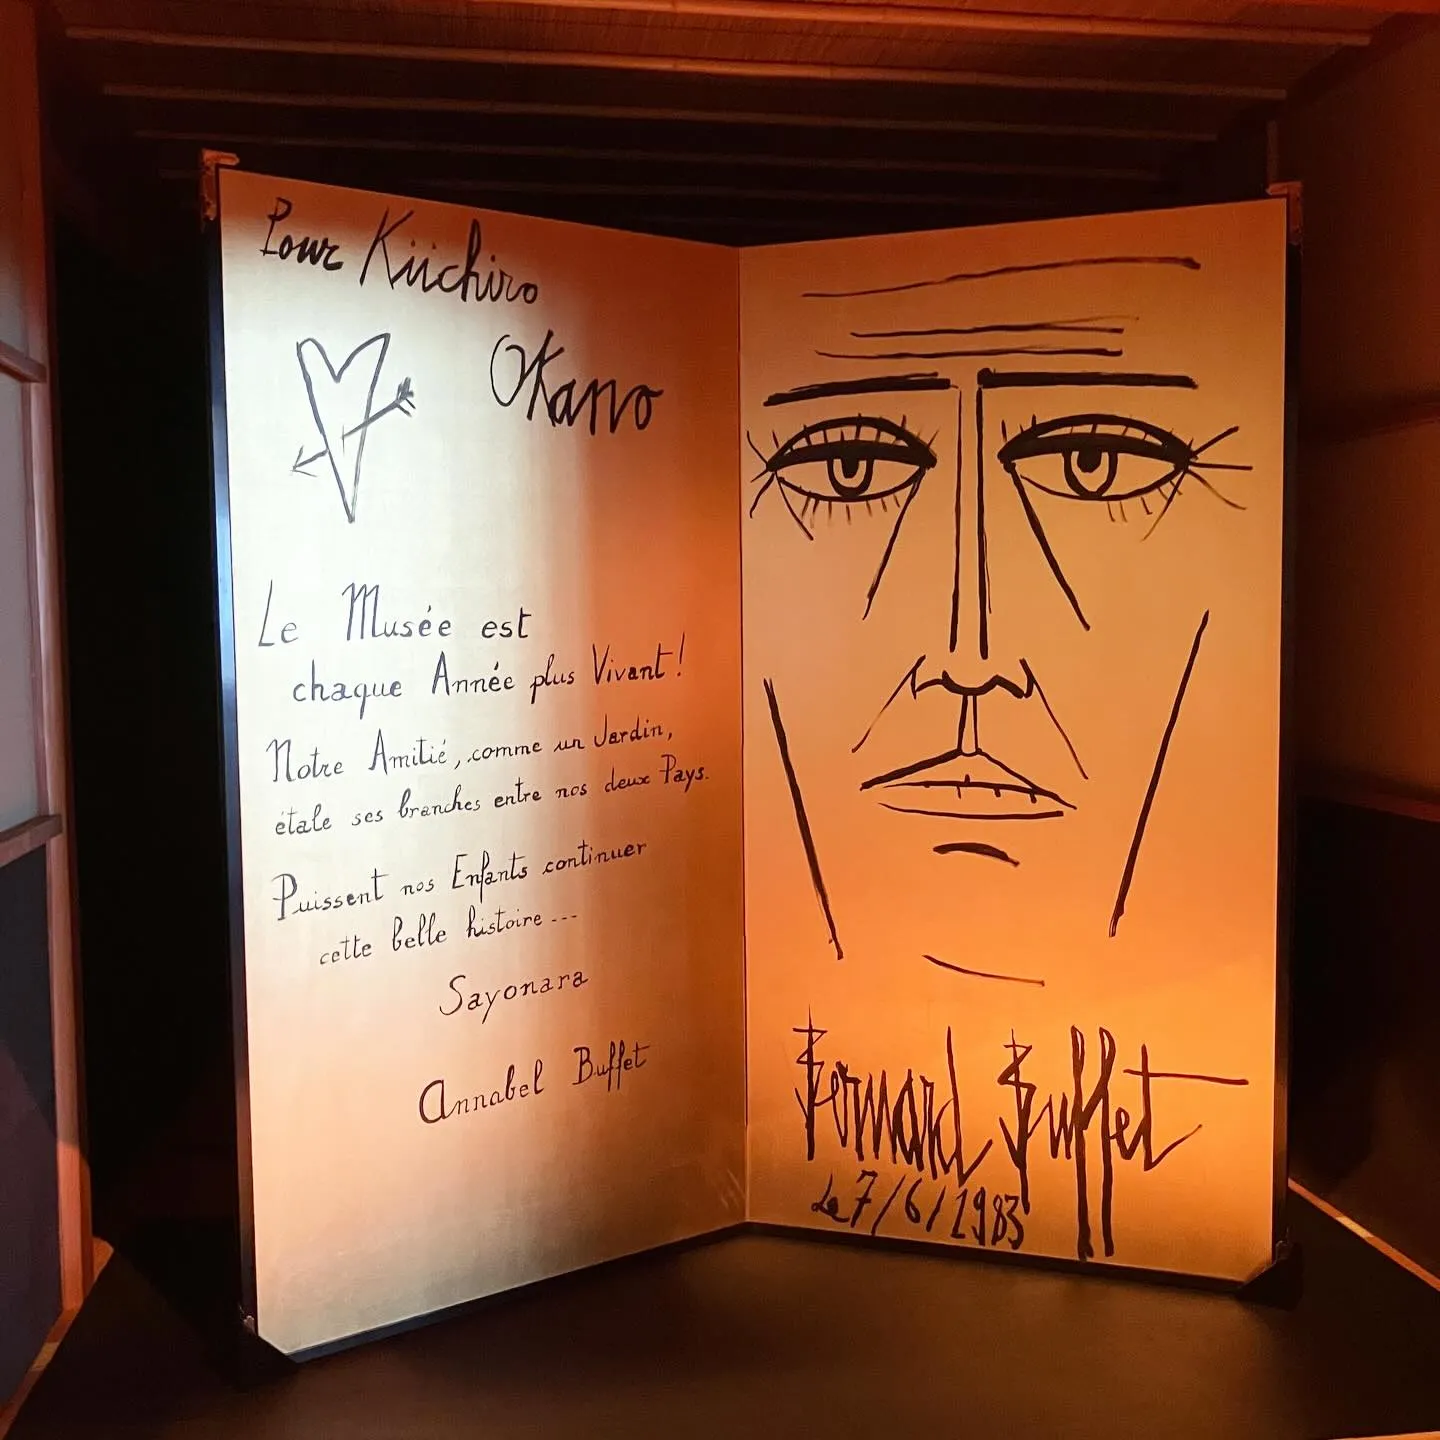 Pour Kiichiro
Okano
Le Musée est
chaque Année plus Vivant !
Notre Amitié, comme un Jardin,
étale ses branches entre nos deux Pays.
Puissent nos Enfants continuer
cette belle histoire ---
Sayonara
Annabel Buffet
Bernard Buffet
Le 7/6/1983